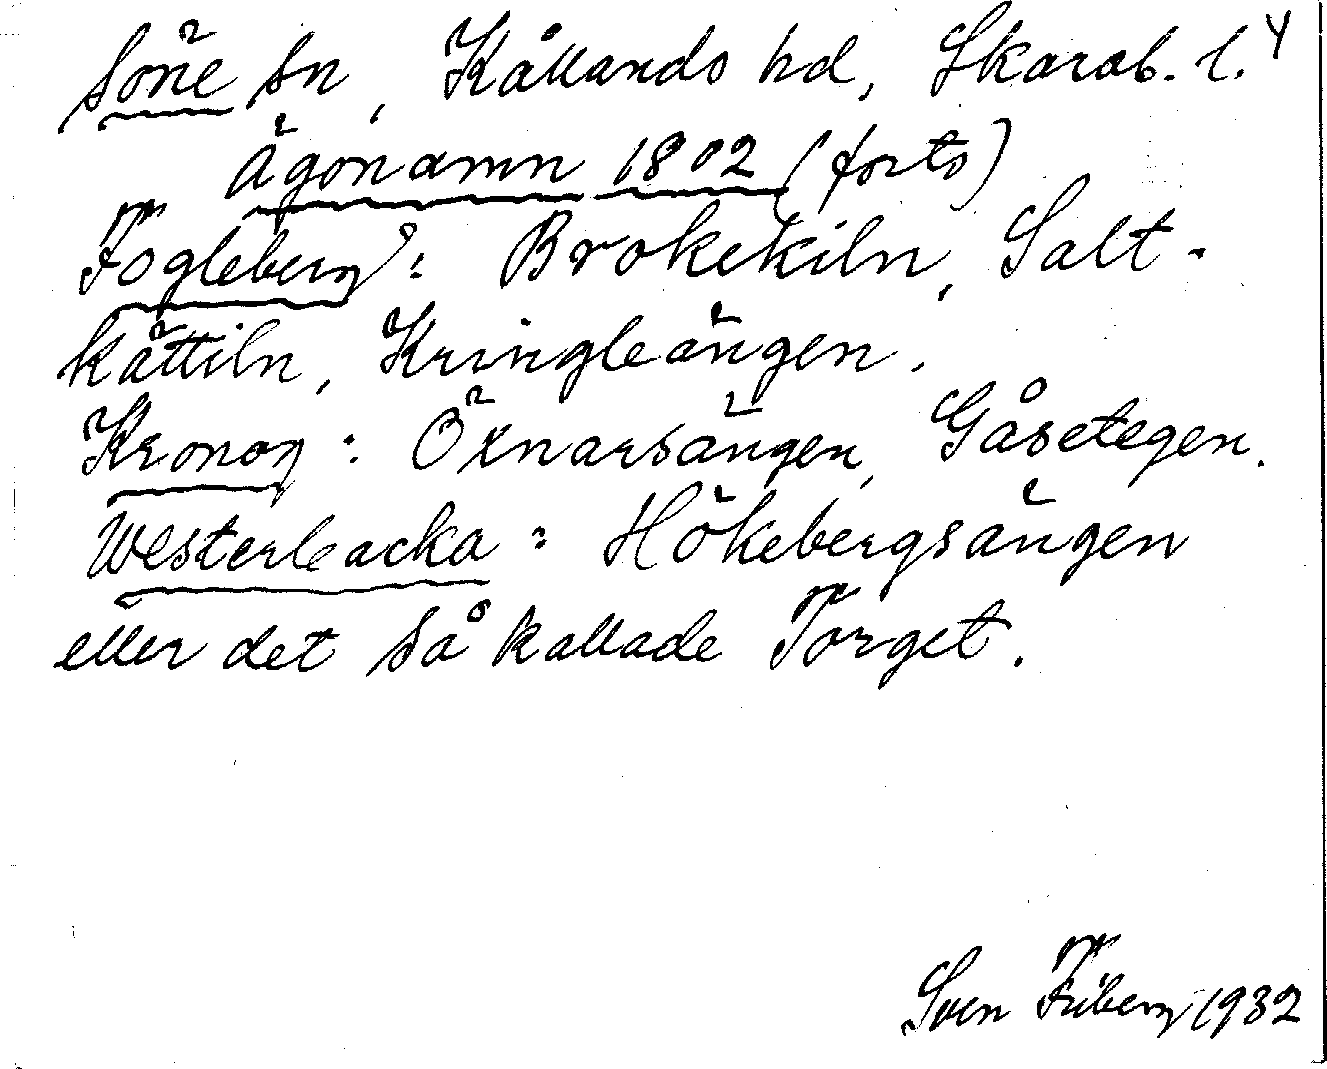 Söne sn, Kållands hd, Skarab. l. 4
Ägonamn 1802 (forts)
Fogleberg: Brokekiln, Salt-
kättiln, Kringleängen.
Kronog: Öxnarsängen, Gåsetegen.
Westerbacka: Hökebergsängen
eller det så kallade Torget.
Sven Friberg 1932